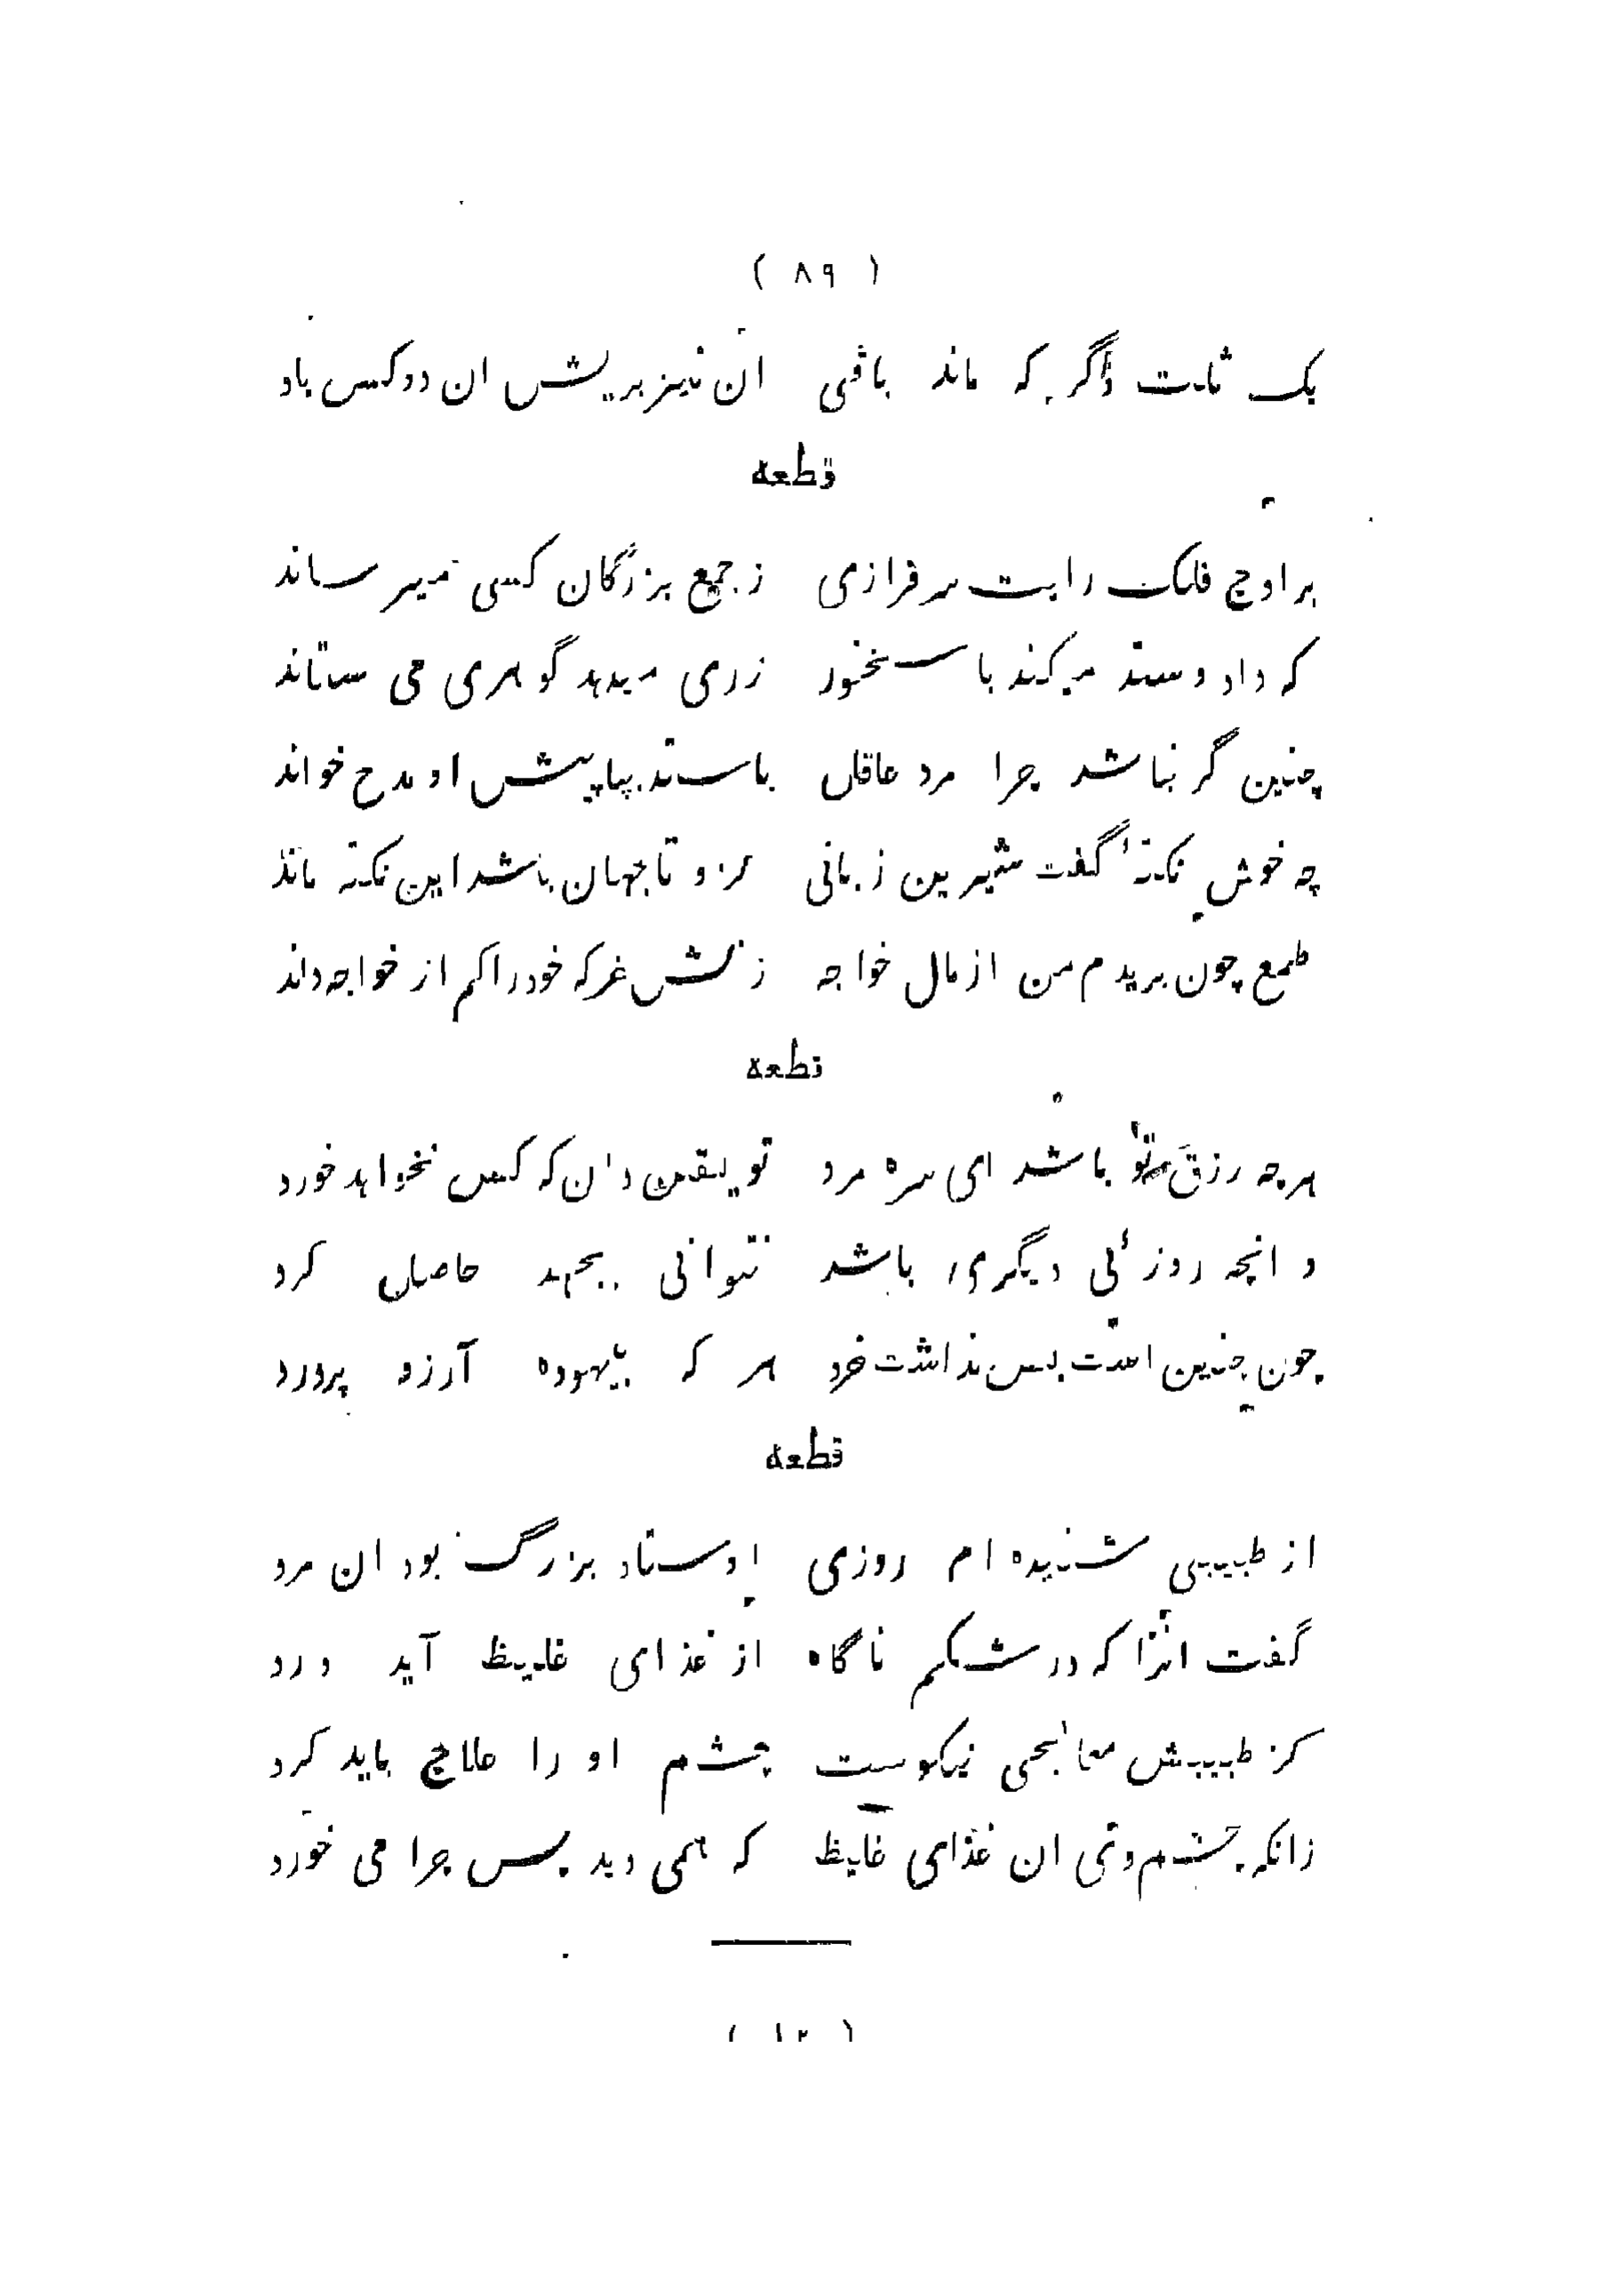 ( ٨٩ )
یک ثلث دگر که ماند باقی ان نیز بریش ان دو کس باد
قطعه
بر اوج فلک رایت سرفرازی ز جمع بزرگان کسی میرساند
که داد و ستد میکند با سخنور زری میدهد گوهری می ستاند
چنین گر نباشد چرا مرد عاقل باستد بپا پیش او مدح خواند
چه خوش نکتهٔ گفت شیرین زبانی کزو تا جهان باشد این نکته ماند
طمع چون بریدم من از مال خواجه زنش غر که خود را کم از خواجه داند
قطعه
هرچه رزق تو باشد ای سره مرد تو یقین دان که کس نخواهد خورد
و انچه روزئی دیگری باشد نتوانی بجهد حاصل کرد
چون چنین است پس نداشت خرد هر که بیهوده آرزو پرورد
قطعه
از طبیبی شنیده ام روزی اوستاد بزرگ بود ان مرد
گفت انرا که در شکم ناگاه از غذای غلیظ آید درد
کز طبیبش معالجی نیکوست چشم او را علاج باید کرد
زانکه چشم وی ان غذای غلیظ که همی دید پس چرا می خورد
( ١٢ )